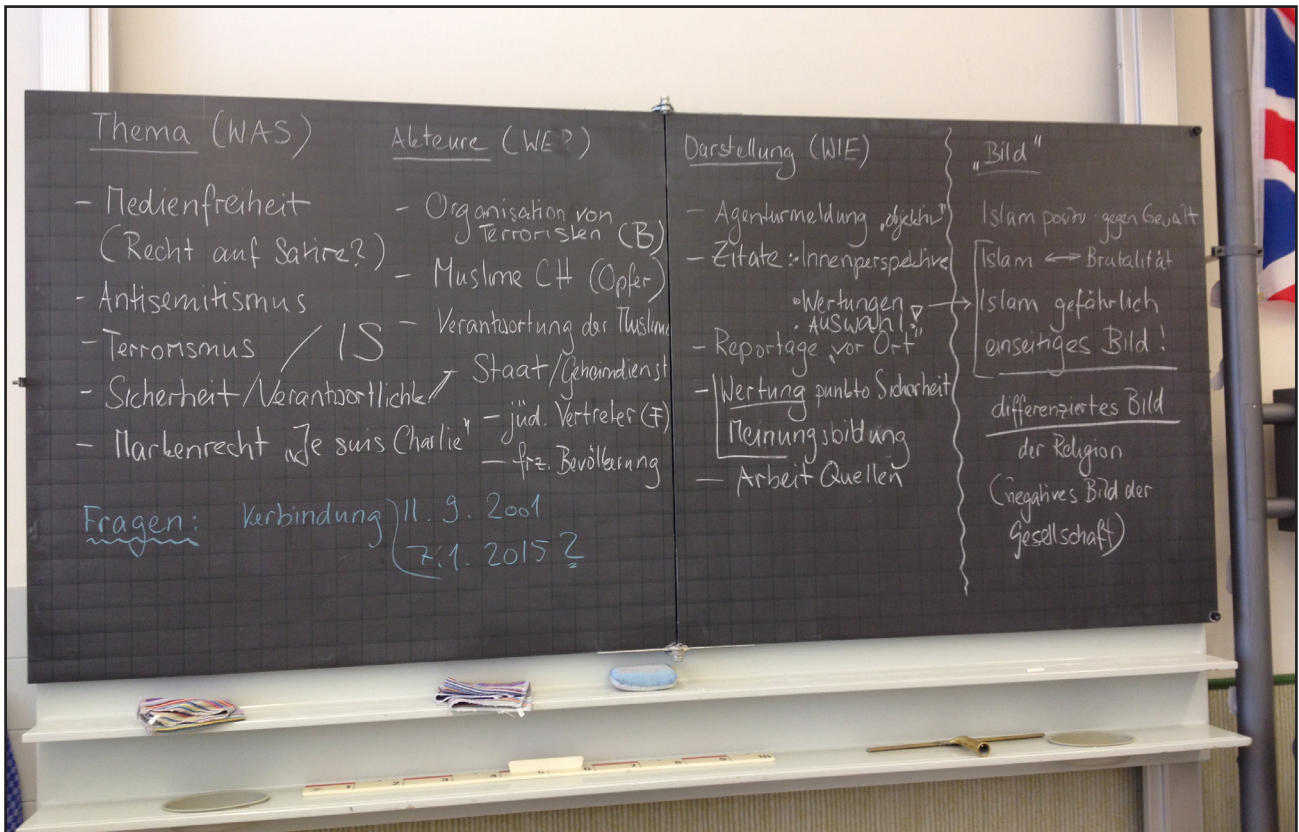 Thema (WAS)
- Medienfreiheit
(Recht auf Satire?)
- Antisemitismus
- Terrorismus / IS
- Sicherheit/Verantwortlichk.
- Markenrecht „Je suis Charlie"
Fragen: Verbindung 11. 9. 2001
7.1. 2015 ?
Akteure (WER)
- Organisation von
Terroristen (B)
- Muslime CH (Opfer)
- Verantwortung der Muslime
- Staat/Geheimdienst
- jüd. Vertreter (F)
- frz. Bevölkerung
Darstellung (WIE)
- Agenturmeldung „objektiv"
- Zitate: • Innenperspektive
• Wertungen
• Auswahl!
- Reportage „vor Ort"
- Wertung punkto Sicherheit
Meinungsbildung
- Arbeit Quellen
„Bild"
Islam positiv: gegen Gewalt
Islam ↔ Brutalität
Islam gefährlich
einseitiges Bild!
differenziertes Bild
der Religion
(negatives Bild der
Gesellschaft)
1 2 3 4 6 7 8 9 10